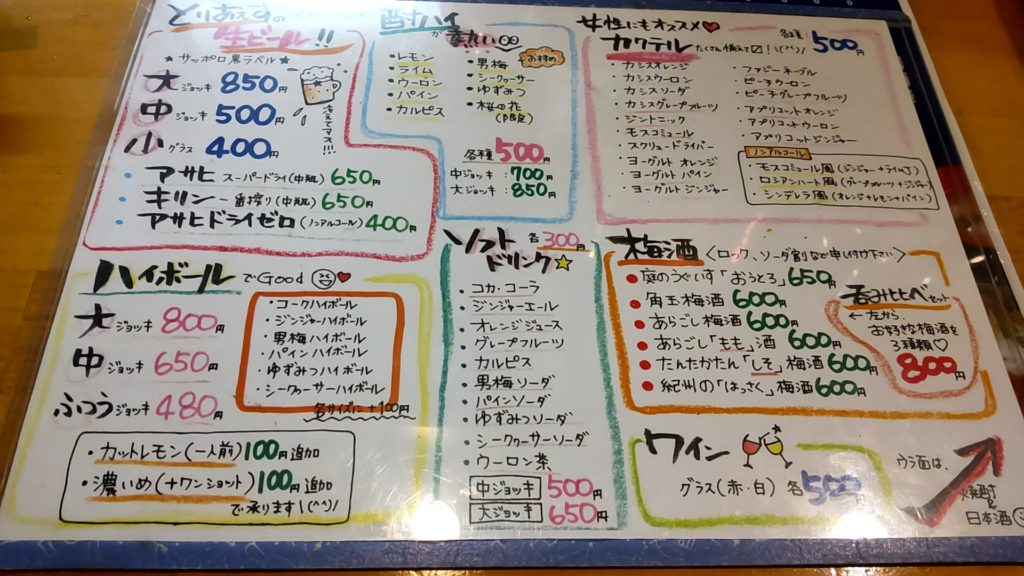 とりあえずの
生ビール!!
★サッポロ黒ラベル★
大 ジョッキ 850円
中 ジョッキ 500円
小 グラス 400円
冷えてマス!!!
・アサヒ スーパードライ(中瓶) 650円
・キリン 一番搾り(中瓶) 650円
・アサヒドライゼロ(ノンアルコール) 400円
酎ハイ
が 熱い
・レモン
・ライム
・ウーロン
・パイン
・カルピス
おすすめ
・男梅
・シークヮーサー
・ゆずみつ
・桜の花
各種 500円
中ジョッキ:700円
大ジョッキ:850円
女性にもオススメ♥
カクテル たくさん揃えて〼!(^^)/
各種 500円
・カシスオレンジ
・カシスウーロン
・カシスソーダ
・カシスグレープフルーツ
・ジントニック
・モスコミュール
・スクリュードライバー
・ヨーグルト オレンジ
・ヨーグルト パイン
・ヨーグルト ジンジャー
・ファジーネーブル
・ピーチウーロン
・ピーチグレープフルーツ
・アプリコットオレンジ
・アプリコットウーロン
・アプリコットジンジャー
ノンアルコール
・モスコミュール風(ジンジャー+ライム)
・ロシアンハート風(グレープフルーツ+ジンジャー)
・シンデレラ風(オレンジ+レモン+パイン)
ハイボール でGood ♥
大 ジョッキ 800円
中 ジョッキ 650円
ふつう ジョッキ 480円
・コークハイボール
・ジンジャーハイボール
・男梅ハイボール
・パインハイボール
・ゆずみつハイボール
・シークヮーサーハイボール
各サイズに+100円
・カットレモン(一人前)100円追加
・濃いめ(+ワンショット)100円追加
で承ります!(^^)/
ソフト 各300円
ドリンク☆
・コカ・コーラ
・ジンジャーエール
・オレンジジュース
・グレープフルーツ
・カルピス
・男梅ソーダ
・パインソーダ
・ゆずみつソーダ
・シークヮーサーソーダ
・ウーロン茶
中ジョッキ 500円
大ジョッキ 650円
梅酒〈ロック、ソーダ割など申し付け下さい〉
●庭のうぐいす「おうとろ」650円
●角玉梅酒 600円
●あらごし梅酒 600円
●あらごし「もも」酒 600円
●たんたかたん「しそ」梅酒 600円
●紀州の「はっさく」梅酒 600円
呑み比べセット
←左から、
お好きな梅酒を
3種類♡
800円
ワイン
グラス(赤・白) 各500円
ウラ面は、
焼酎と
日本酒